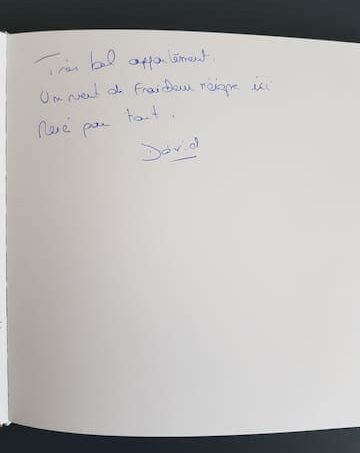 Très bel appartement.
Un vent de Fraicheur règne ici
Merci pour tout.
David